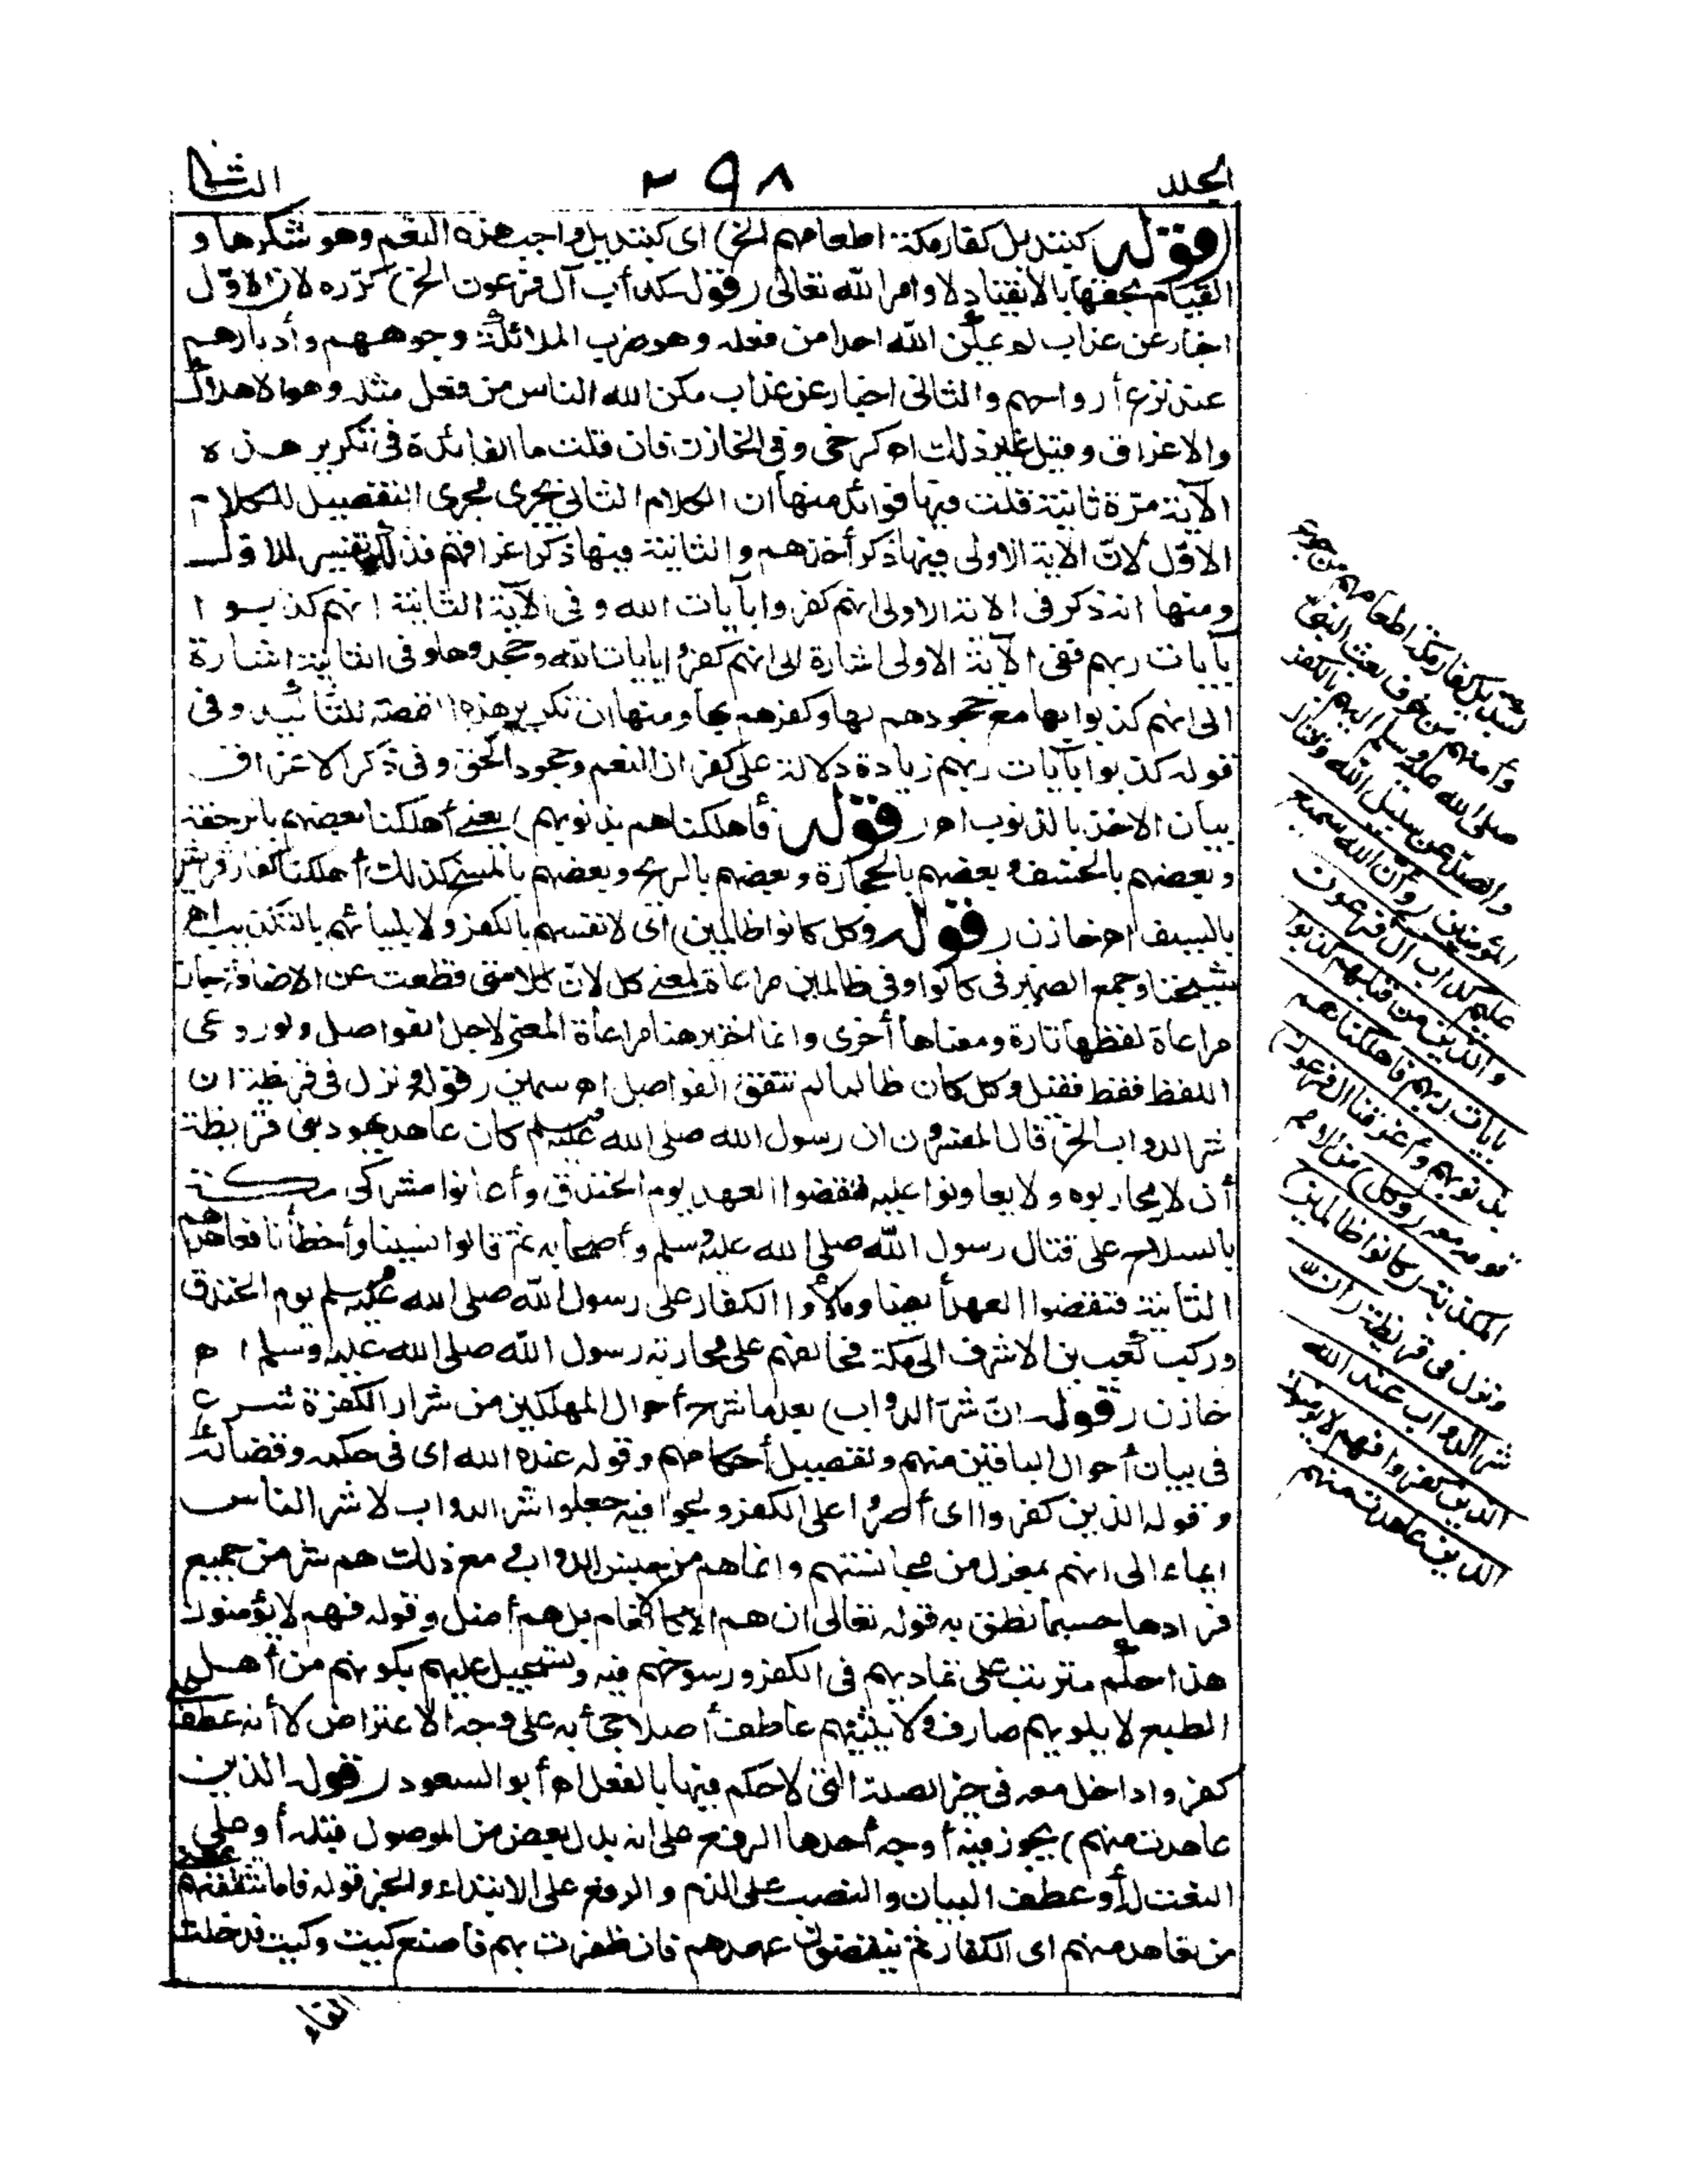 الجلد ٢٩٨ الثانى
(قوله كتبديل كفار مكة اطعامهم الخ) اى كتبديل واجب هذه النعم وهو شكرها و
القيام بحقها بالانقياد لاوامر الله تعالى (قوله كدأب آل فرعون الخ) كرره لان الاول
اخبار عن عذاب لم يمكن الله احدا من فعله وهو ضرب الملائكة وجوههم وأدبارهم
عند نزع أرواحهم والثانى اخبار عن عذاب مكن الله الناس من فعل مثله وهو الاهلاك
والاغراق وقيل غير ذلك اه كرخى وفى الخازن فان قلت ما الفائدة فى تكرير هذه
الآية مرة ثانية قلت فيها فوائد منها ان الكلام الثانى يجرى مجرى التفصيل للكلام
الاول لانّ الآية الاولى فيها ذكر أخذهم والثانية فيها ذكر اغراقهم فذلك تفسير للاول
ومنها انه ذكر فى الآية الاولى انهم كفروا بآيات الله وفى الآية الثانية انهم كذبوا
بآيات ربهم ففى الآية الاولى اشارة الى انهم كفروا بآيات الله وجحدوها وفى الثانية اشارة
الى انهم كذبوا بها مع جحودهم لها وكفرهم بها ومنها ان تكرير هذه القصة للتأكيد وفى
قوله كذبوا بآيات ربهم زيادة دلالة على كفران النعم وجحود الحق وفى ذكر الاغراق
بيان الاخذ بالذنوب اه (قوله فأهلكناهم بذنوبهم) يعنى أهلكنا بعضهم بالرجفة
وبعضهم بالخسف وبعضهم بالحجارة وبعضهم بالريح وبعضهم بالمسخ كذلك أهلكنا كفار قريش
بالسيف اه خازن (قوله وكل كانوا ظالمين) اى لانفسهم بالكفر ولانبيائهم بالتكذيب اه
شيخنا وجمع الضمير فى كانوا وفى ظالمين مراعاة لمعنى كل لانّ كلا متى قطعت عن الاضافة جاز
مراعاة لفظها تارة ومعناها أخرى وانما اختير هنا مراعاة المعنى لاجل الفواصل ولو روعى
اللفظ فقط فقيل وكل كان ظالما لم تتفق الفواصل اه سمين (قوله ونزل فى قريظة ان
شر الدواب الخ) قال المفسرون ان رسول الله صلى الله عليه وسلم كان عاهد يهود بنى قريظة
أن لا يحاربوه ولا يعاونوا عليه فنقضوا العهد يوم الخندق وأعانوا مشركى مكة
بالسلاح على قتال رسول الله صلى الله عليه وسلم وأصحابه ثم قالوا نسينا وأخطأنا فعاهدهم
الثانية فنقضوا العهد أيضا ومالأوا الكفار على رسول الله صلى الله عليه وسلم يوم الخندق
وركب كعب بن الاشرف الى مكة فحالفهم على محاربة رسول الله صلى الله عليه وسلم اه
خازن (قوله انّ شرّ الدواب) بعد ما شرح أحوال المهلكين من شرار الكفرة شرع
فى بيان أحوال الباقين منهم وتفصيل أحكامهم وقوله عند الله اى فى حكمه وقضائه
وقوله الذين كفروا اى أصروا على الكفر ولجوا فيه جعلوا شر الدواب لا شر الناس
ايماء الى انهم بمعزل من مجانستهم وانما هم من جنس الدواب ومع ذلك هم شر من جميع
افرادها حسبما نطق به قوله تعالى ان هم الا كالانعام بل هم أضل وقوله فهم لا يؤمنون
هذا حكم مترتب على تماديهم فى الكفر ورسوخهم فيه وتسجيل عليهم بكونهم من أهل
الطبع لا يلويهم صارف ولا يثنيهم عاطف أصلا جئ به على وجه الاعتراض لا أنه عطف على
كفروا داخل معه فى حيز الصلة التى لا حكم فيها بالفعل اه أبو السعود (قوله الذين
عاهدت منهم) يجوز فيه أوجه أحدها الرفع على انه بدل بعض من الموصول قبله أو على
النعت له أو عطف البيان والنصب على الذم والرفع على الابتداء والخبر قوله فاما تثقفنهم
من تعاهد منهم اى الكفار ثم ينقضون عهدهم فان ظفرت بهم فاصنع كيت وكيت فدخلت
الفاء
تبديل كفار مكة اطعامهم من جوع
وأمنهم من خوف بعث النبى
صلى الله عليه وسلم اليهم بالكفر
والصد عن سبيل الله وقتال
المؤمنين (وأن الله سميع
عليم كدأب آل فرعون
والذين من قبلهم كذبوا
بآيات ربهم فأهلكناهم
بذنوبهم وأغرقنا آل فرعون)
قومه معه (وكل) من الامم
المكذبة (كانوا ظالمين)
ونزل فى قريظة (ان
شر الدواب عند الله
الذين كفروا فهم لا يؤمنون
الذين عاهدت منهم